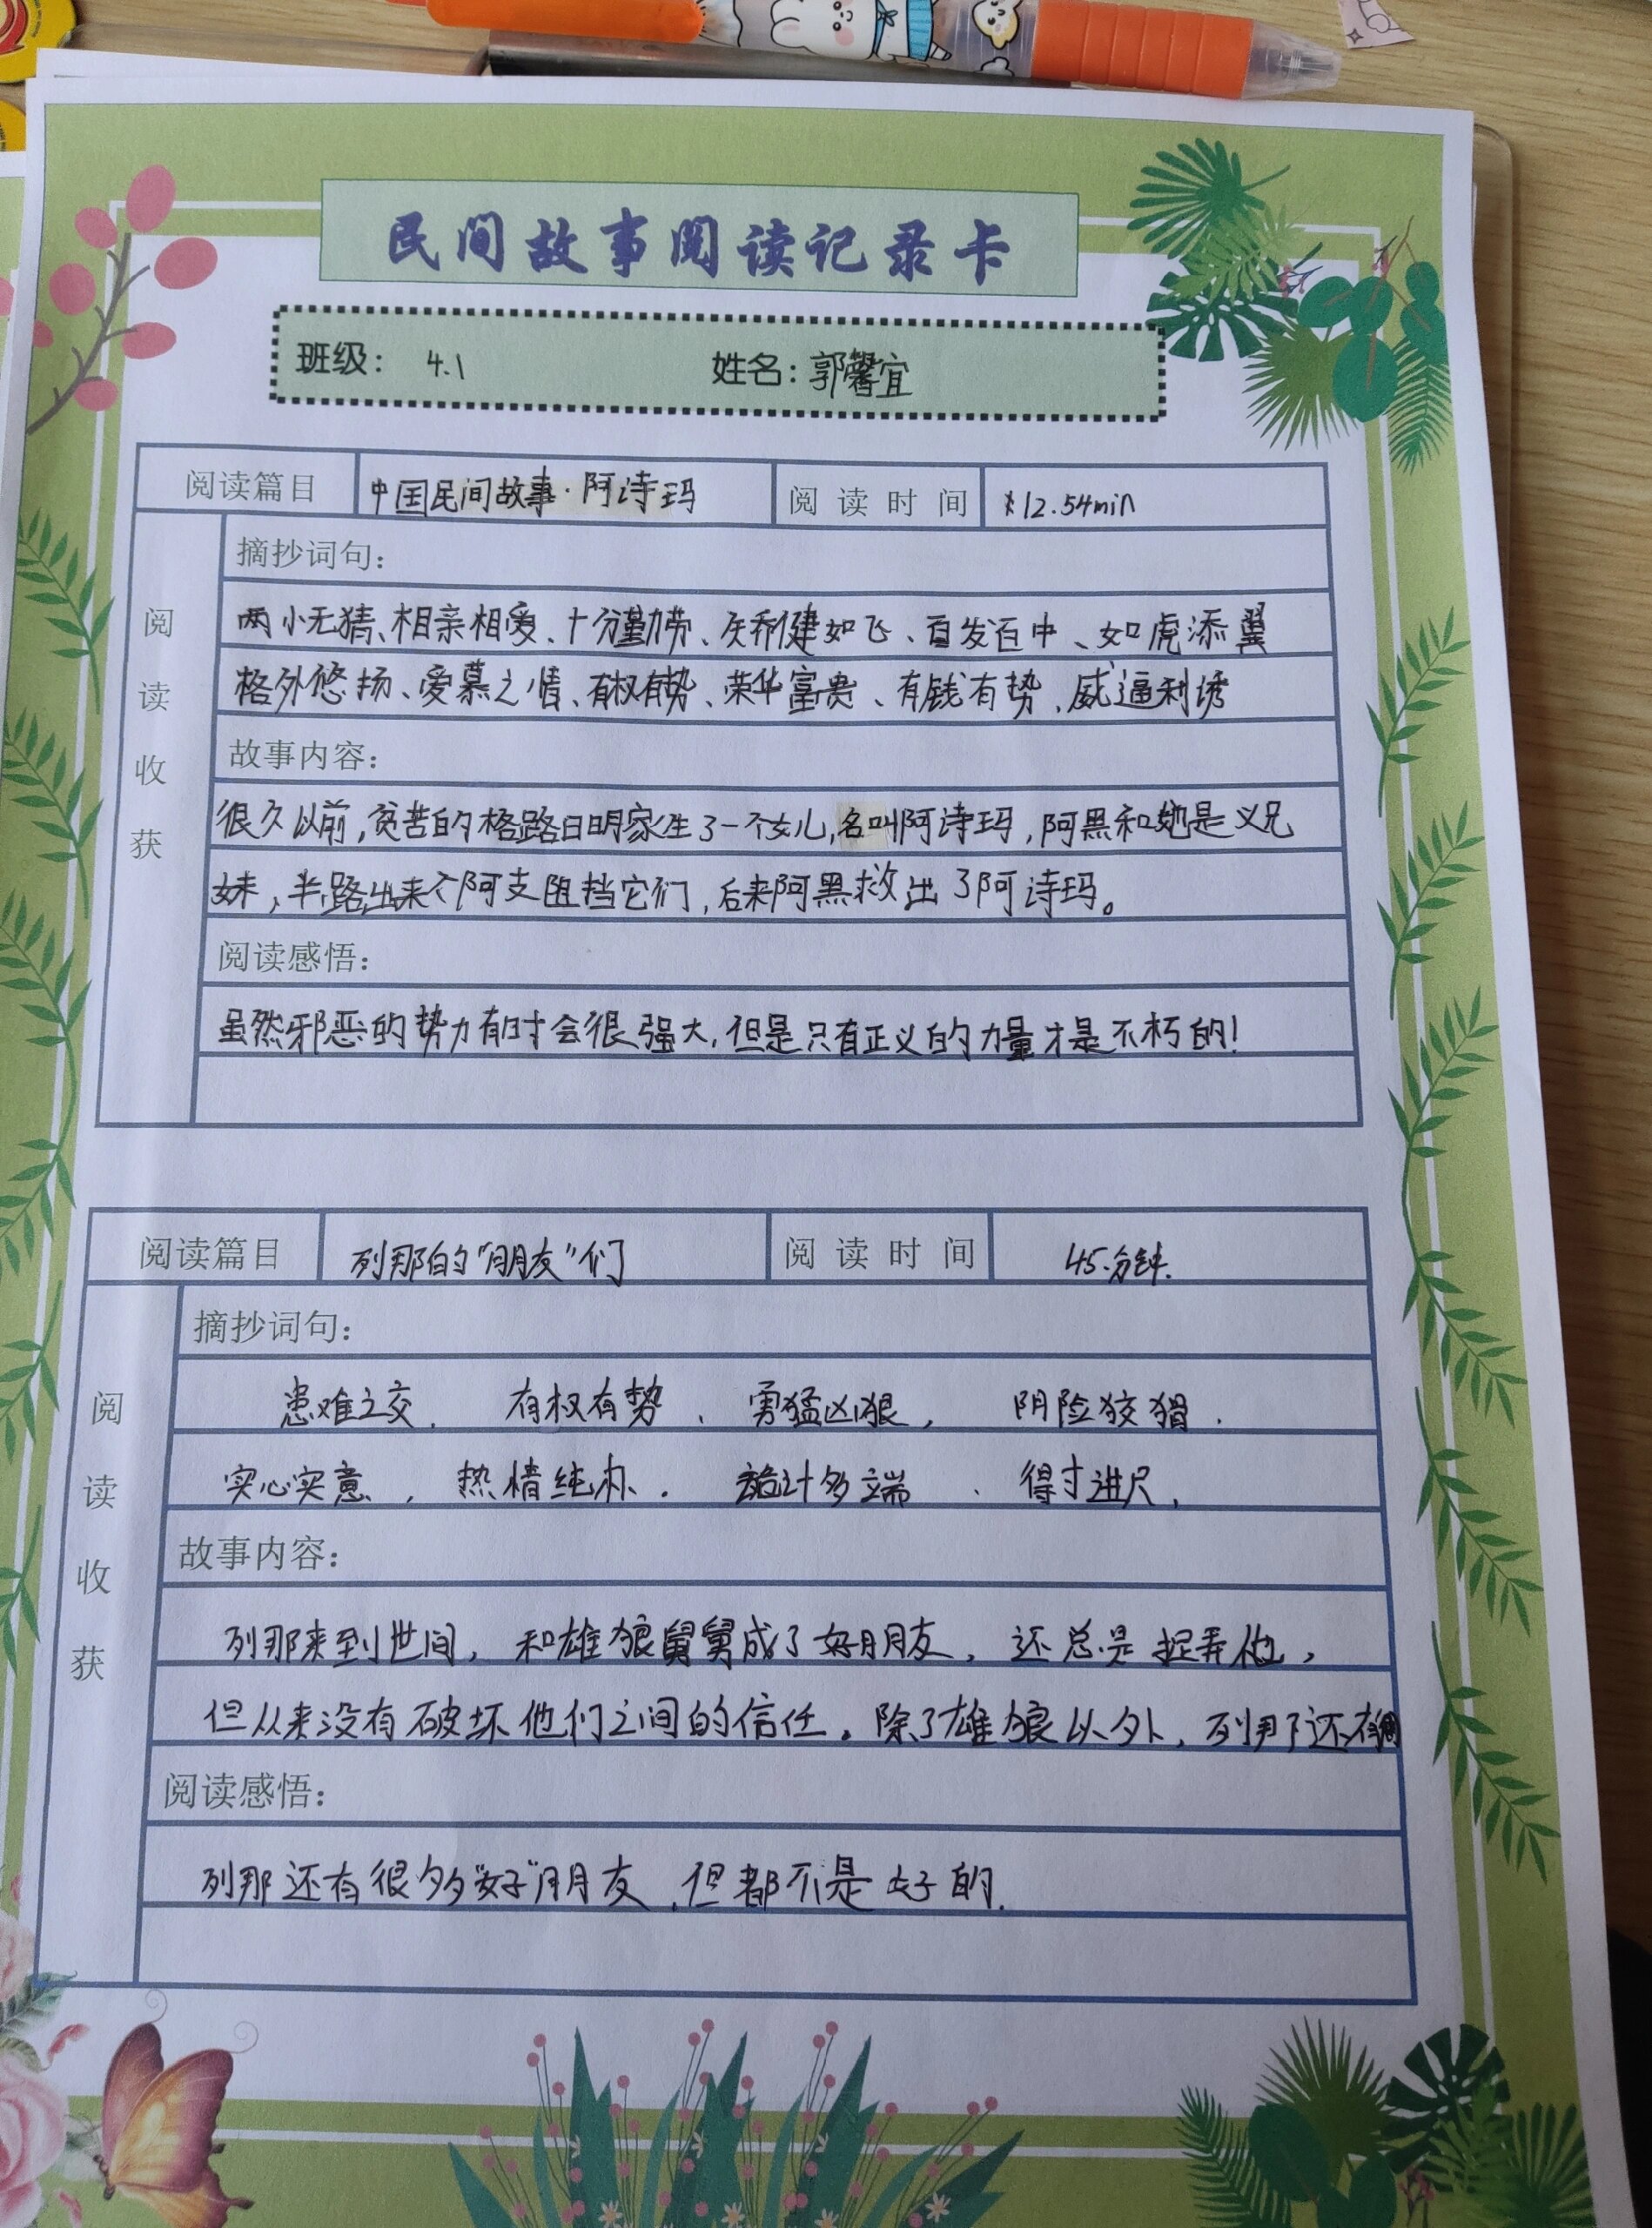 民间故事阅读记录卡
班级： 4.1 姓名：郭馨宜
阅读篇目 中国民间故事·阿诗玛 阅读时间 12.54min
阅读收获
摘抄词句：
两小无猜、相亲相爱、十分勤劳、矫健如飞、百发百中、如虎添翼
格外悠扬、爱慕之情、有权有势、荣华富贵、有钱有势、威逼利诱
故事内容：
很久以前,贫苦的格路日明家生了一个女儿,名叫阿诗玛,阿黑和她是义兄
妹,半路出来个阿支阻挡它们,后来阿黑救出了阿诗玛。
阅读感悟：
虽然邪恶的势力有时会很强大,但是只有正义的力量才是不朽的!
阅读篇目 列那的“朋友”们 阅读时间 45分钟.
阅读收获
摘抄词句：
患难之交、 有权有势、 勇猛凶狠, 阴险狡猾.
实心实意, 热情纯朴. 诡计多端、 得寸进尺,
故事内容：
列那来到世间, 和雄狼舅舅成了好朋友, 还总是捉弄他,
但从来没有破坏他们之间的信任。除了雄狼以外, 列那还有
阅读感悟：
列那还有很多“好”朋友,但都不是好的.